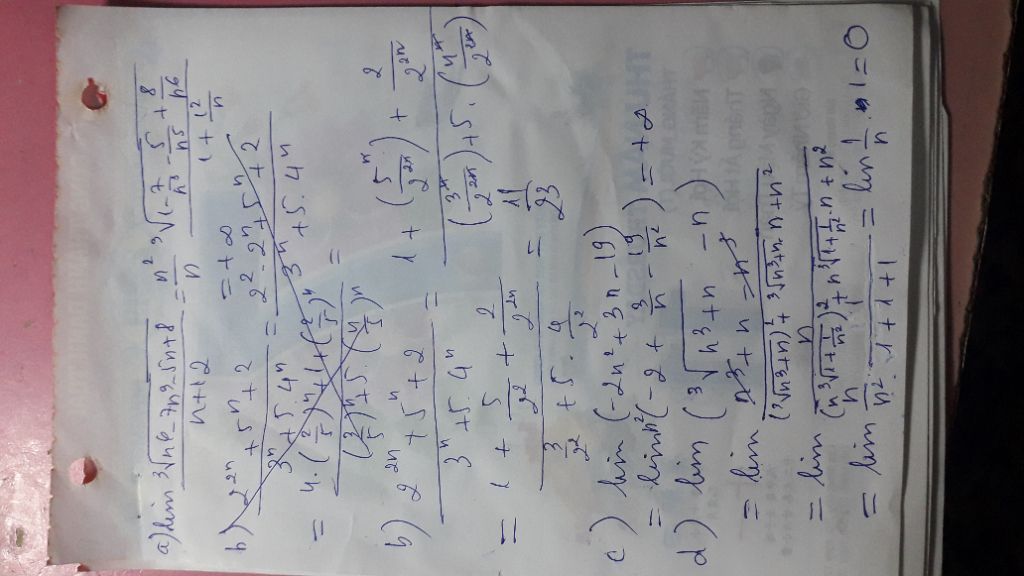 a) lim ³√(n⁶ - 7n³ - 5n + 8) / (n + 12) = n² ³√(1 - 7/n³ - 5/n⁵ + 8/n⁶) / n (1 + 12/n)
= +∞
b) (2²ⁿ + 5ⁿ + 2) / (3ⁿ + 5.4ⁿ) = (2².2ⁿ + 5ⁿ + 2) / (3ⁿ + 5.4ⁿ)
= (4.(2/5)ⁿ + 1 + (2/5)ⁿ) / ((3/5)ⁿ + 5.(4/5)ⁿ) =
b) (2²ⁿ + 5ⁿ + 2) / (3ⁿ + 5.4ⁿ) = (1 + (5ⁿ/2²ⁿ) + 2/2²ⁿ) / ((3ⁿ/2²ⁿ) + 5.(4ⁿ/2²ⁿ))
= (1 + 5/2² + 2/2²ⁿ) / (3/2² + 5.4/2²) = /23
c) lim (-2n² + 3n - 19)
= lim n² (-2 + 3/n - 19/n²) = +∞
d) lim (³√(n³ + n) - n)
= lim (n³ + n - n³) / ((³√(n³+n))² + ³√(n³+n).n + n²)
= lim n / ((n ³√(1 + 1/n²))² + n ³√(1 + 1/n²).n + n²)
= lim n / (n².1 + 1 + 1) = lim 1/n.1 = 0